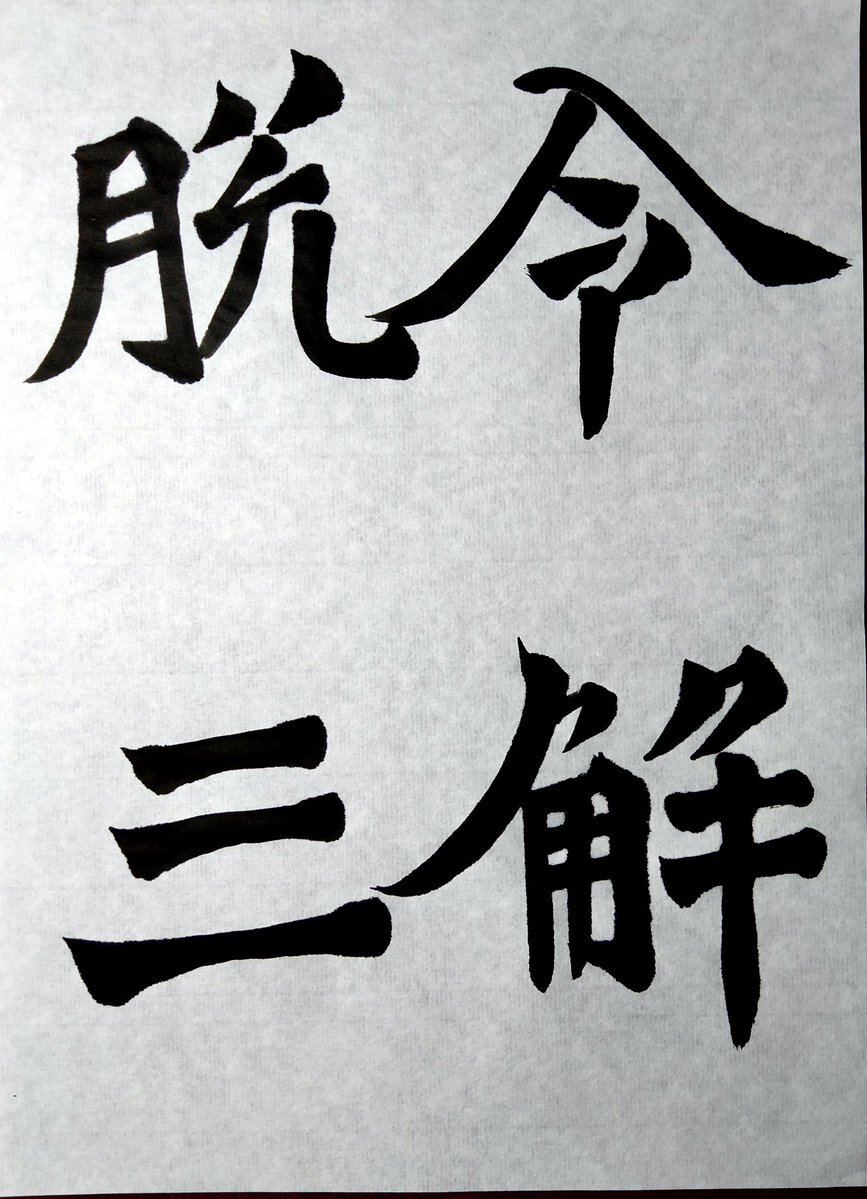 令解
脱三